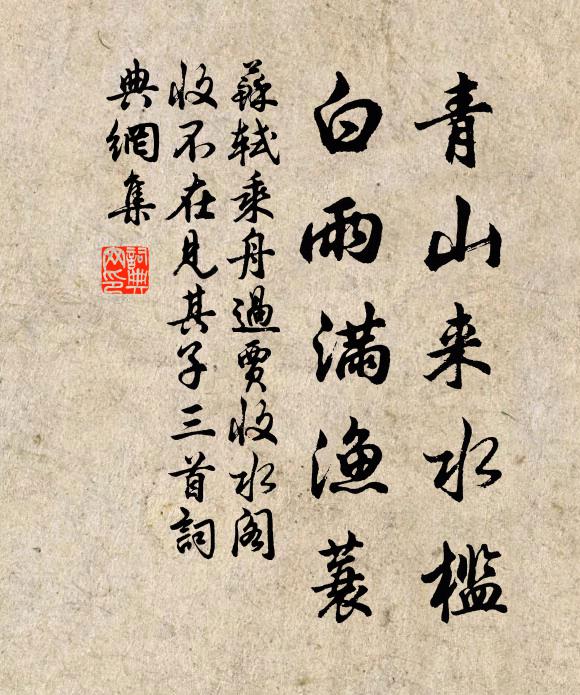 青山来水檻
白雨满渔蓑
蘇軾乘舟過賈收水阁
收不在見其子三首詞
典網集
詞典
网印